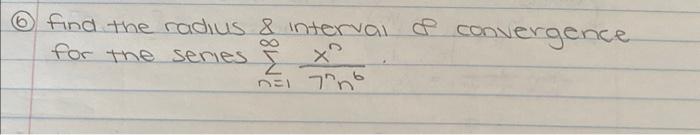 ⑥ find the radius & interval of convergence
for the series ∞ Σ n=1 xⁿ / 7ⁿn⁶ .